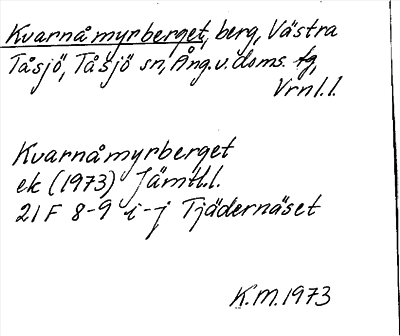 Kvarnåmyrberget, berg, Västra
Tåsjö, Tåsjö sn, Ång. v. doms. fg,
Vrnl.l.
Kvarnåmyrberget
ek (1973) Jämtl.l.
21 F 8-9 i-j Tjädernäset
K.M. 1973